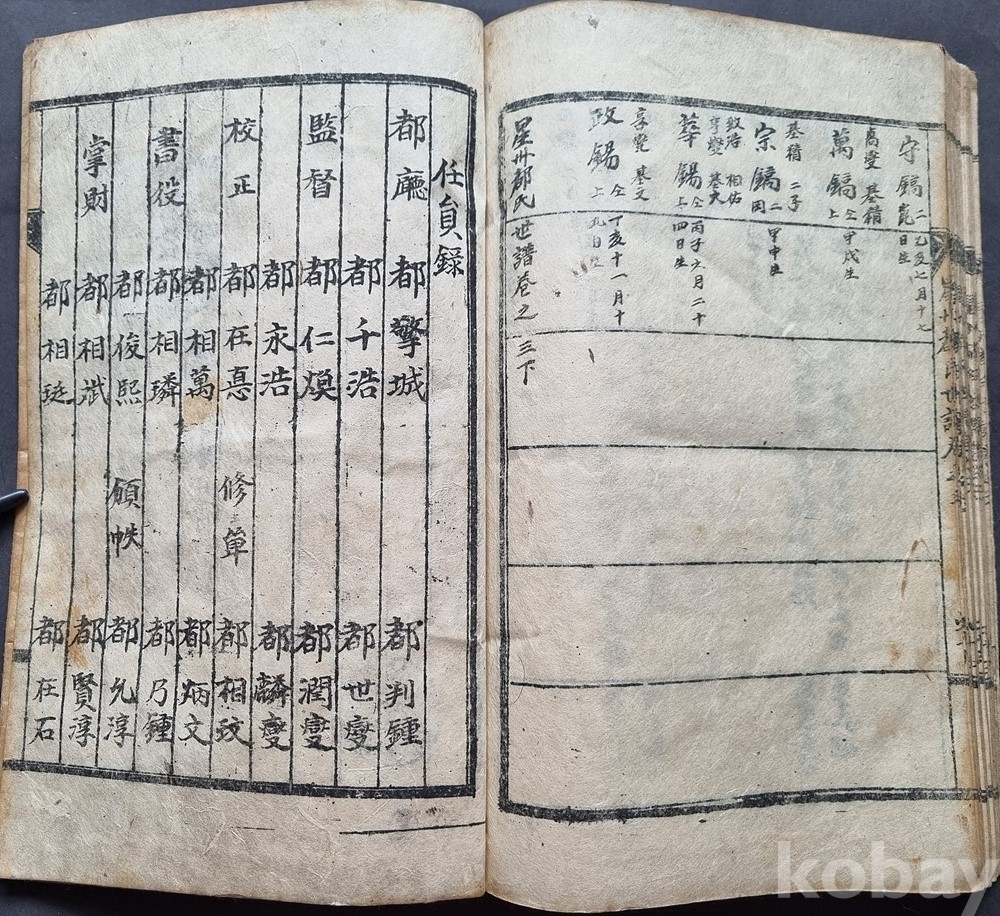 守鎬 二 乙亥七月十七
日生
萬鎬 上
仝 甲戌生
基積 二子
宗鎬 二
甲申生
致浩 相佑
華錫 上
仝 丙子六月二十
四日生
享燮 基文
政錫 上
仝 丁亥十一月十
九日生
星州都氏世譜卷之三下
任員錄
都廳 都擎城 都判鍾
都千浩 都世燮
監督 都仁煥 都潤燮
都永浩 都麟燮
校正 都在悳 修單 都相玟
都相萬 都炳文
書役 都相璘 都乃鍾
都俊熙 頒帙 都允淳
掌財 都相斌 都賢淳
都相珽 都在石
kobay